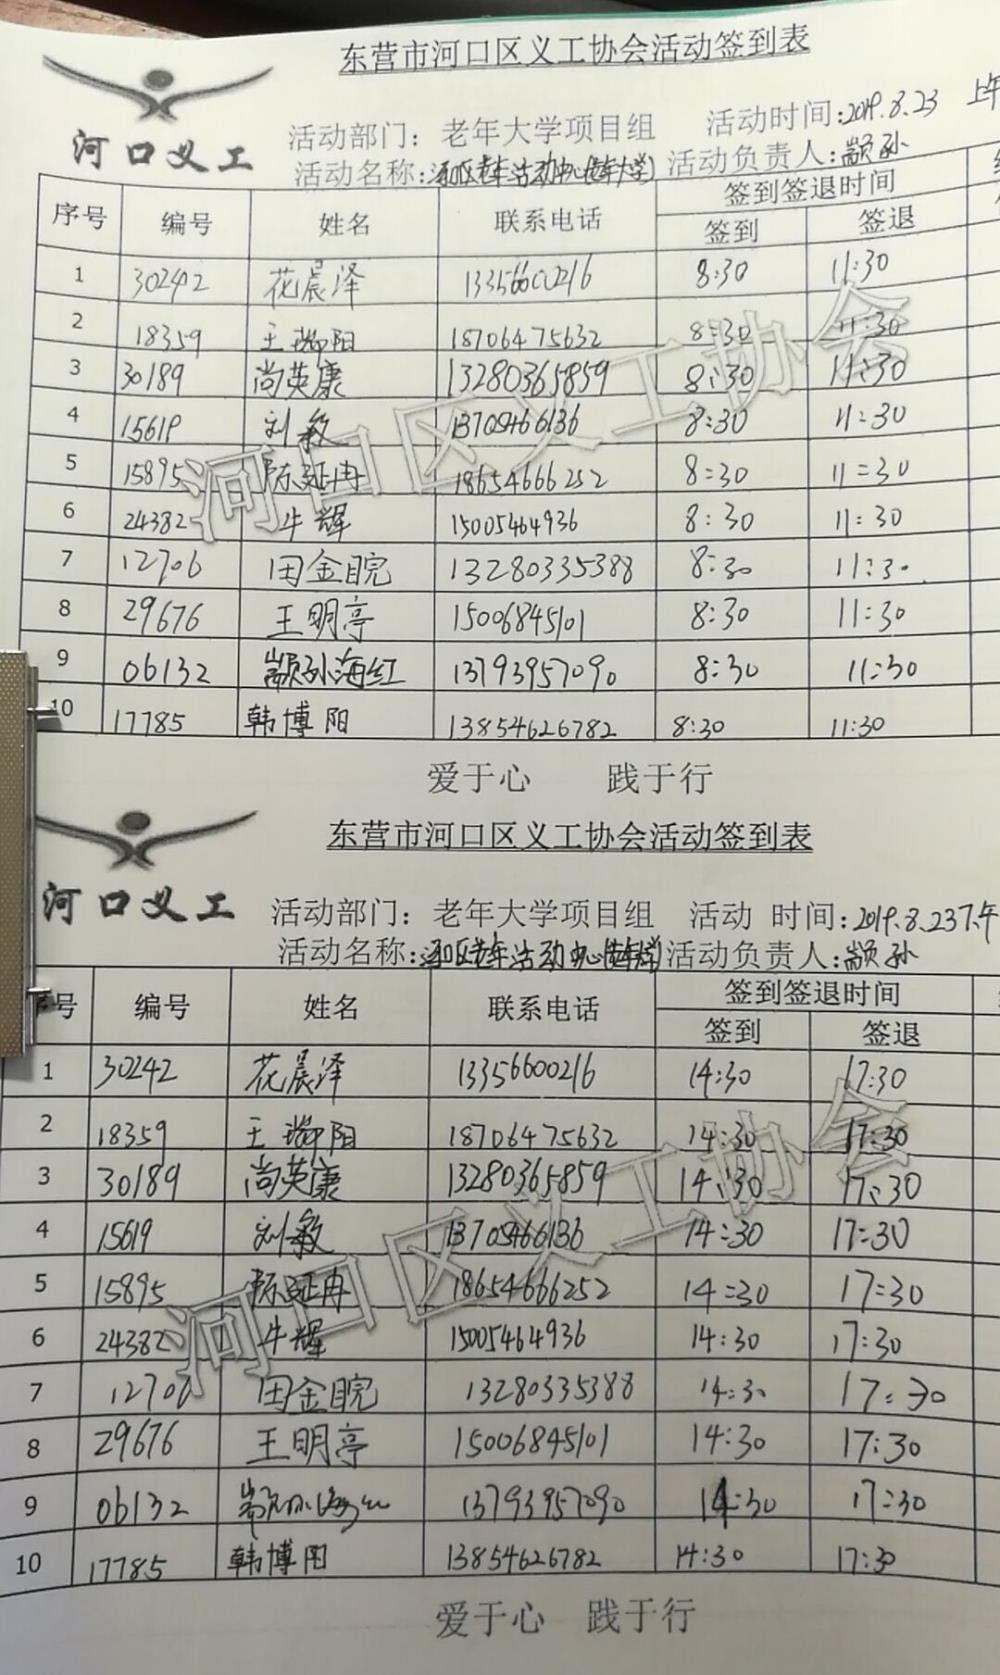 东营市河口区义工协会活动签到表
河口义工
活动部门：老年大学项目组 活动时间:2019.8.23 上午
活动名称:河口区老年活动中心(老年大学) 活动负责人:颛孙
序号 编号 姓名 联系电话 签到签退时间
签到 签退
1 30242 花晨泽 13356600216 8:30 11:30
2 18359 王瑞阳 18706475632 8:30 11:30
3 30189 尚英康 13280365859 8:30 11:30
4 15619 刘敏 13705466136 8:30 11:30
5 15895 陈延冉 18654666252 8:30 11:30
6 24382 牛辉 15005464936 8:30 11:30
7 12706 田金皖 13280335388 8:30 11:30
8 29676 王明亭 15006845101 8:30 11:30
9 06132 颛孙海红 13793957090 8:30 11:30
10 17785 韩博阳 13854626782 8:30 11:30
河口区义工协会
爱于心 践于行
东营市河口区义工协会活动签到表
河口义工
活动部门：老年大学项目组 活动 时间:2019.8.23下午
活动名称:河口区老年活动中心(老年大学) 活动负责人:颛孙
序号 编号 姓名 联系电话 签到签退时间
签到 签退
1 30242 花晨泽 13356600216 14:30 17:30
2 18359 王瑞阳 18706475632 14:30 17:30
3 30189 尚英康 13280365859 14:30 17:30
4 15619 刘敏 13705466136 14:30 17:30
5 15895 陈延冉 18654666252 14:30 17:30
6 24382 牛辉 15005464936 14:30 17:30
7 12706 田金皖 13280335388 14:30 17:30
8 29676 王明亭 15006845101 14:30 17:30
9 06132 颛孙海红 13793957090 14:30 17:30
10 17785 韩博阳 13854626782 14:30 17:30
河口区义工协会
爱于心 践于行